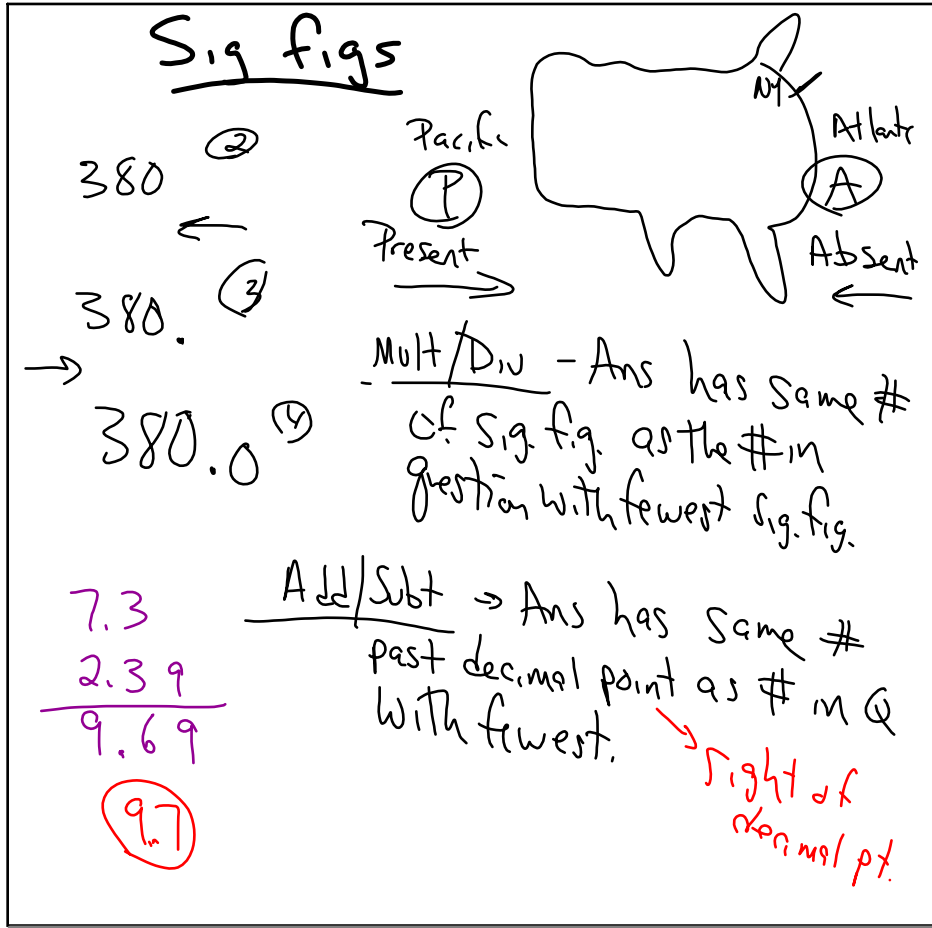 Sig figs
380 ②
380. ③
380.0 ④
Pacific
P
Present
NY
Atlantc
A
Absent
Mult/Div - Ans has same #
of sig. fig. as the # in
question with fewest sig. fig.
Add/Subt → Ans has same #
past decimal point as # in Q
with fewest.
right of
decimal pt.
7.3
2.39
9.69
9.7